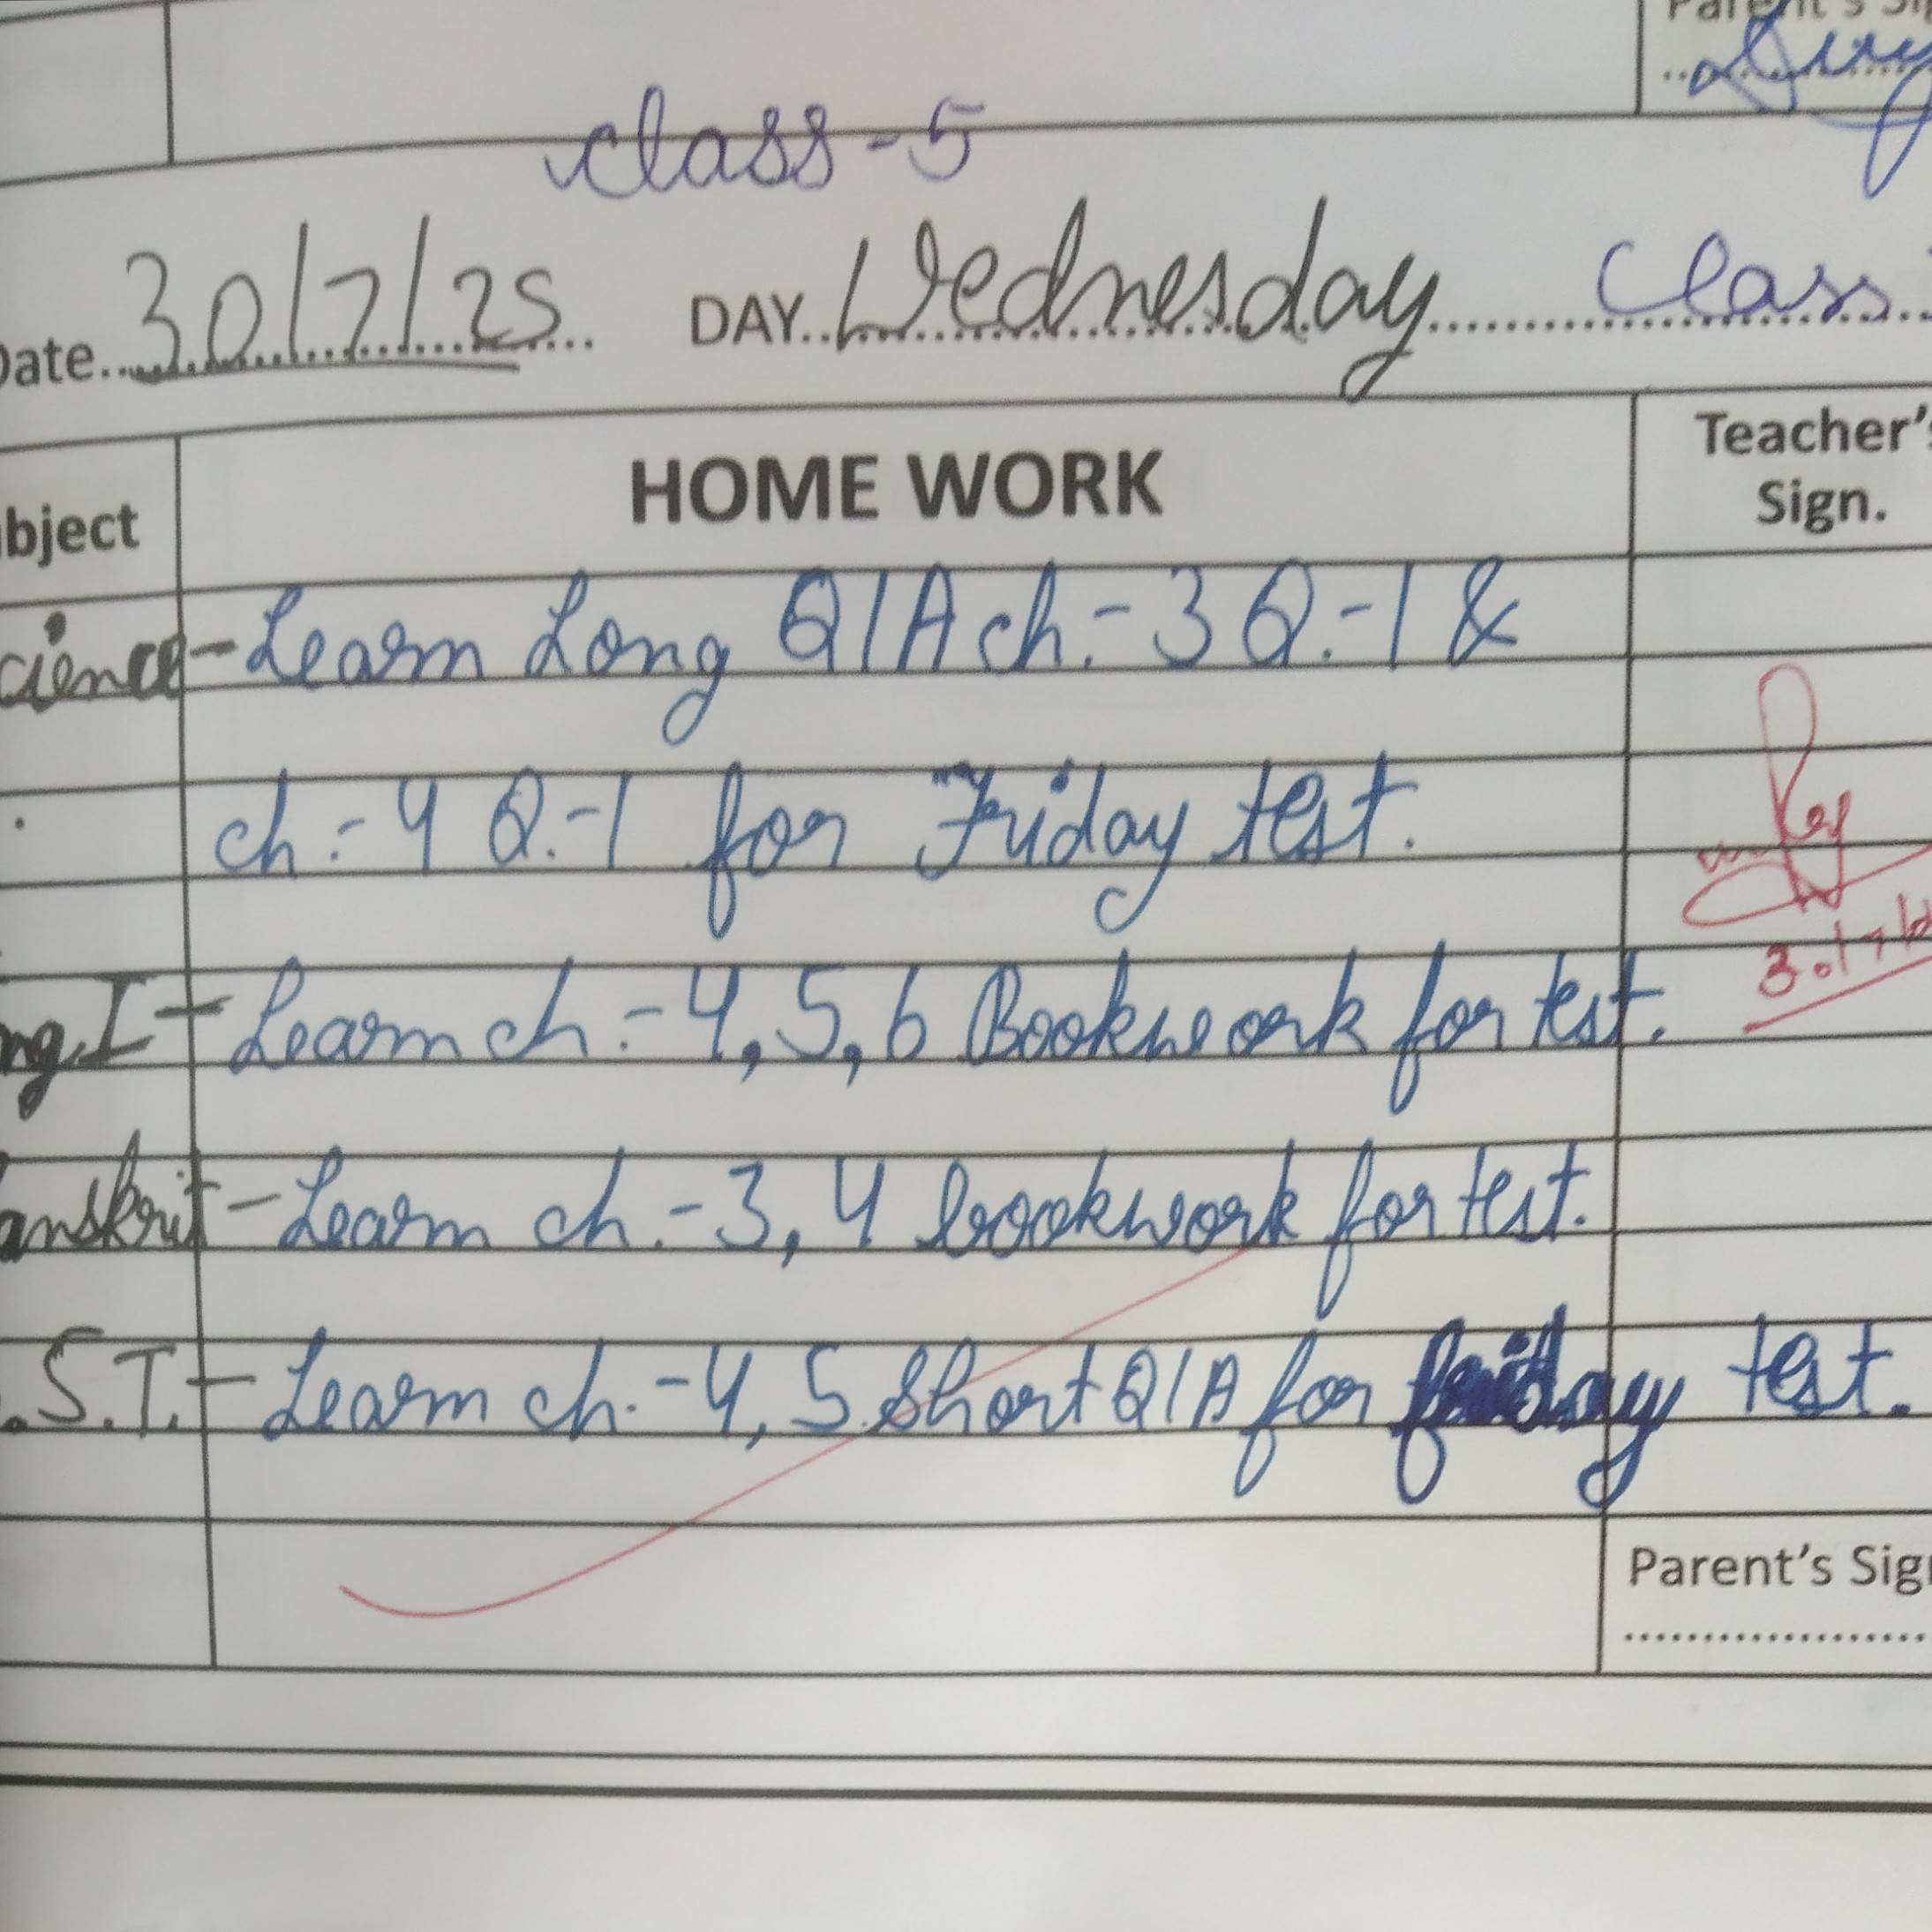 Parent's Si
class-5
Date 30/7/25 DAY Wednesday Class
bject HOME WORK Teacher's Sign.
cience - Learn Long Q/A ch.-3 Q.-1 &
ch.-4 Q.-1 for Friday test.
ng.I - Learn ch.-4,5,6 Bookwork for test.
anskrit - Learn ch.-3,4 bookwork for test.
.S.T. - Learn ch.-4,5 Short Q/A for friday test.
Parent's Sig